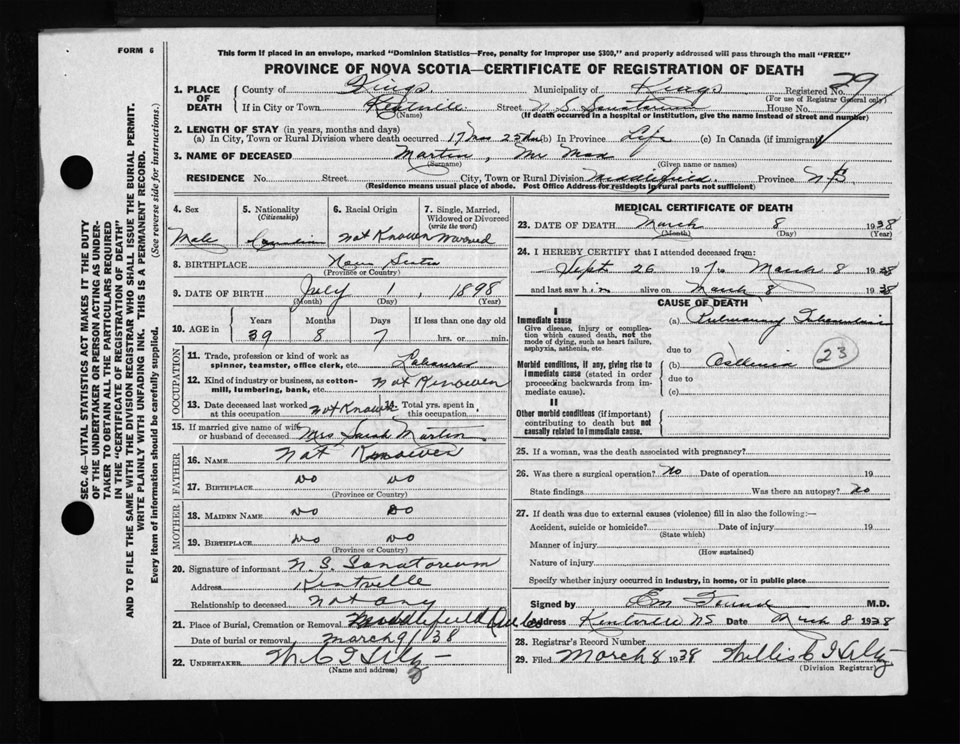 FORM 6
This form if placed in an envelope, marked "Dominion Statistics—Free, penalty for improper use $300," and properly addressed will pass through the mail "FREE"
PROVINCE OF NOVA SCOTIA—CERTIFICATE OF REGISTRATION OF DEATH
1. PLACE OF DEATH
County of Kings Municipality of Kings Registered No. 79
(For use of Registrar General only)
If in City or Town Kentville Street N S Sanatorium House No.
(Name) (If death occurred in a hospital or institution, give the name instead of street and number)
2. LENGTH OF STAY (in years, months and days)
(a) In City, Town or Rural Division where death occurred 17 (b) In Province Life (c) In Canada (if immigrant)
3. NAME OF DECEASED Martin, Mr Max
(Surname) (Given name or names)
RESIDENCE No. Street City, Town or Rural Division Middlefield. Province N S
(Residence means usual place of abode. Post Office Address for residents in rural parts not sufficient)
SEC. 46—VITAL STATISTICS ACT MAKES IT THE DUTY
OF THE UNDERTAKER OR PERSON ACTING AS UNDER-
TAKER TO OBTAIN ALL THE PARTICULARS REQUIRED
IN THE "CERTIFICATE OF REGISTRATION OF DEATH"
AND TO FILE THE SAME WITH THE DIVISION REGISTRAR WHO SHALL ISSUE THE BURIAL PERMIT.
WRITE PLAINLY WITH UNFADING INK. THIS IS A PERMANENT RECORD.
Every item of information should be carefully supplied. (See reverse side for instructions.)
4. Sex
Male
5. Nationality
(Citizenship)
Canadian
6. Racial Origin
Not Knowen
7. Single, Married,
Widowed or Divorced
(write the word)
Married
8. BIRTHPLACE Nova Scotia
(Province or Country)
9. DATE OF BIRTH July 1, 1898
(Month) (Day) (Year)
10. AGE in
Years Months Days If less than one day old
39 8 7 hrs. or min.
OCCUPATION
11. Trade, profession or kind of work as
spinner, teamster, office clerk, etc. Labourer
12. Kind of industry or business, as cotton-
mill, lumbering, bank, etc. Not Knowen
13. Date deceased last worked
at this occupation Not Knowen
14. Total yrs. spent in
this occupation
15. If married give name of wife
or husband of deceased Mrs Sarah Martin
FATHER
16. NAME Not Knowen
17. BIRTHPLACE DO DO
(Province or Country)
MOTHER
18. MAIDEN NAME DO DO
19. BIRTHPLACE DO DO
(Province or Country)
20. Signature of informant N. S. Sanatorium
Address Kentville
Relationship to deceased Not any
21. Place of Burial, Cremation or Removal Middlefield
Date of burial or removal March 9/38
22. UNDERTAKER
(Name and address)
MEDICAL CERTIFICATE OF DEATH
23. DATE OF DEATH March 8 1938
(Month) (Day) (Year)
24. I HEREBY CERTIFY that I attended deceased from:
Sept 26 to March 8 1938
and last saw him alive on March 8 1938
CAUSE OF DEATH
I
Immediate cause
Give disease, injury or complica-
tion which caused death, not the
mode of dying, such as heart failure,
asphyxia, asthenia, etc.
(a) Pulmonary Tuberculosis
due to
Morbid conditions, if any, giving rise to
immediate cause (stated in order
proceeding backwards from im-
mediate cause).
(b)
23
due to
(c)
II
Other morbid conditions (if important)
contributing to death but not
causally related to immediate cause.
25. If a woman, was the death associated with pregnancy?
26. Was there a surgical operation? No Date of operation 19
State findings Was there an autopsy? No
27. If death was due to external causes (violence) fill in also the following:—
Accident, suicide or homicide? Date of injury 19
(State which)
Manner of injury
(How sustained)
Nature of injury
Specify whether injury occurred in industry, in home, or in public place
Signed by M.D.
Address Kentville NS Date March 8 1938
28. Registrar's Record Number
29. Filed March 8 1938 Willis
(Division Registrar)